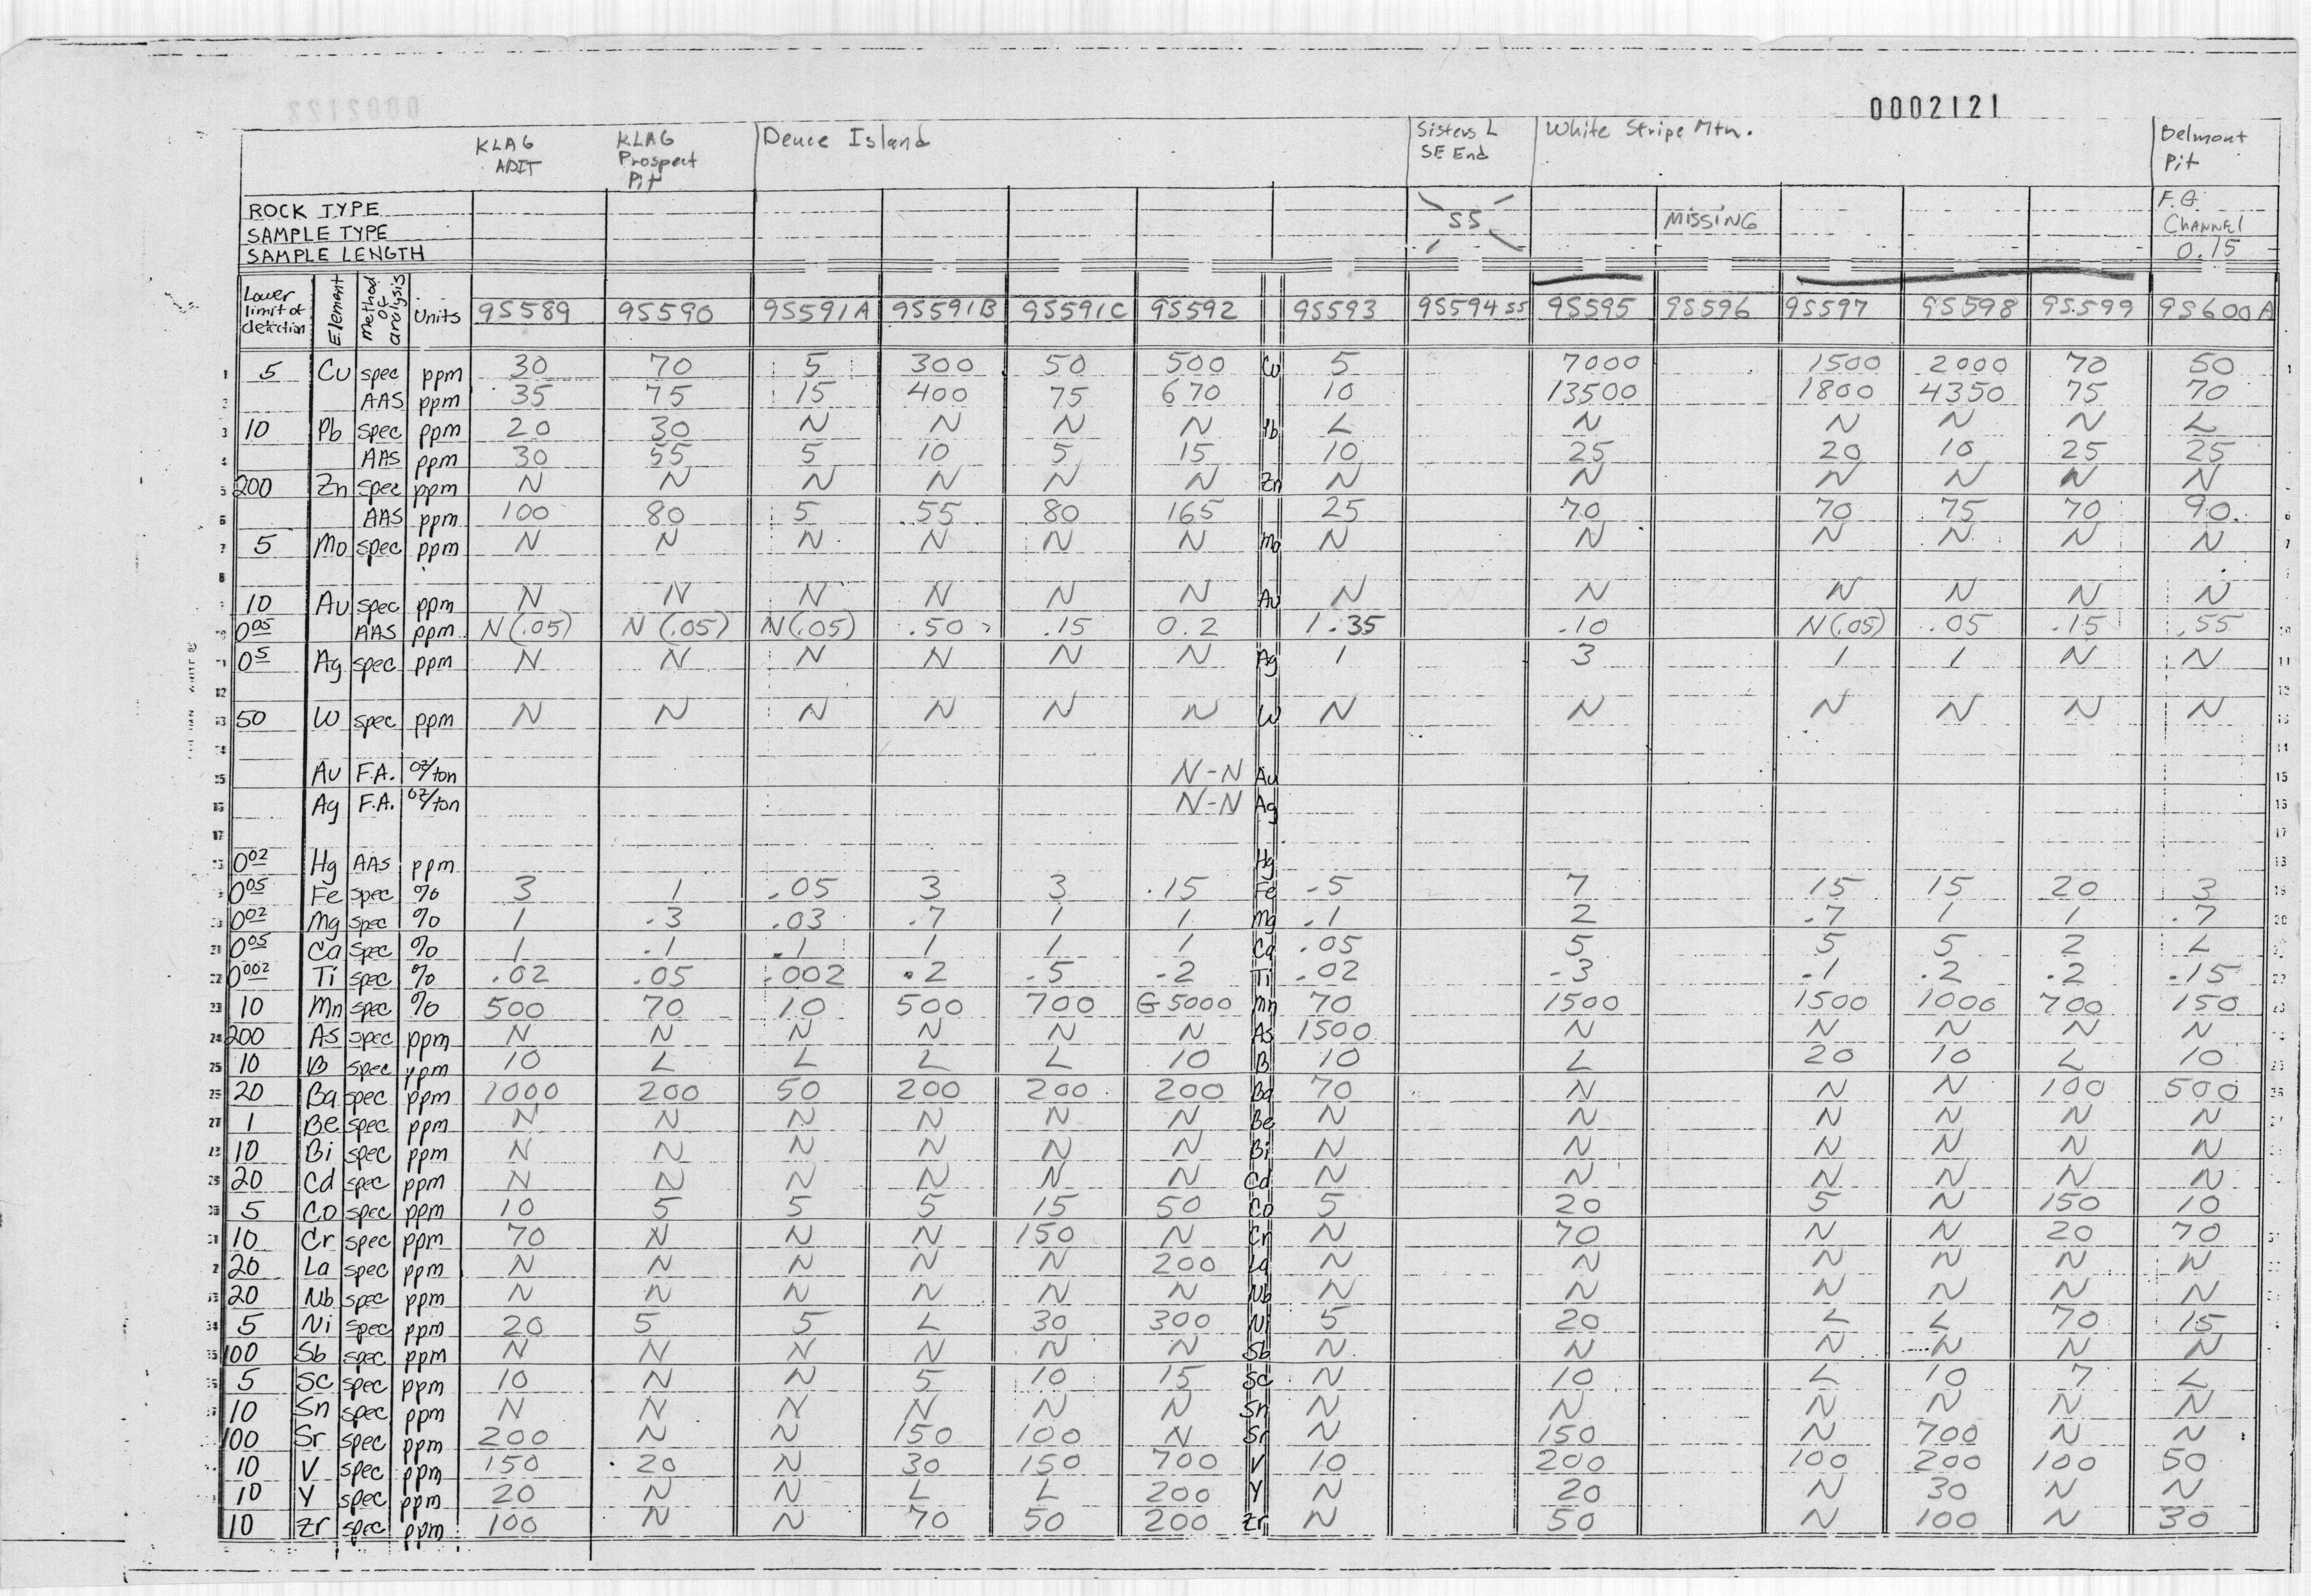 0002122
0002121
KLAG ADIT KLAG Prospect Pit Deuce Island Sisters L SE End White Stripe Mtn. Belmont Pit
ROCK TYPE F.G.
SAMPLE TYPE SS MISSING CHANNEL
SAMPLE LENGTH 0.15
Lower limit of detection Element Method of analysis Units 9S589 9S590 9S591A 9S591B 9S591C 9S592 9S593 9S594 SS 9S595 9S596 9S597 9S598 9S599 9S600A
1 5 Cu spec ppm 30 70 5 300 50 500 Cu 5 7000 1500 2000 70 50 1
2 AAS ppm 35 75 15 400 75 670 10 13500 1800 4350 75 70
3 10 Pb spec ppm 20 30 N N N N Pb L N N N N L
4 AAS ppm 30 55 5 10 5 15 10 25 20 10 25 25
5 200 Zn spec ppm N N N N N N Zn N N N N N N
6 AAS ppm 100 80 5 55 80 165 25 70 70 75 70 90 6
7 5 Mo spec ppm N N N N N N Mo N N N N N N 7
8
10 Au spec ppm N N N N N N Au N N N N N N
10 0.05 AAS ppm N(.05) N(.05) N(.05) .50 .15 0.2 1.35 .10 N(.05) .05 .15 .55 10
11 0.5 Ag spec ppm N N N N N N Ag 1 3 1 1 N N 11
12 12
13 50 W spec ppm N N N N N N W N N N N N N 13
14 14
15 Au F.A. oz/ton N-N Au 15
16 Ag F.A. oz/ton N-N Ag 16
17 17
18 0.02 Hg AAS ppm Hg 18
0.05 Fe spec % 3 1 .05 3 3 .15 Fe .5 7 15 15 20 3 19
0.02 Mg spec % 1 .3 .03 .7 1 1 Mg .1 2 .7 1 1 .7 20
21 0.05 Ca spec % 1 .1 .1 1 1 1 Ca .05 5 5 5 2 L
22 0.002 Ti spec % .02 .05 .002 .2 .5 .2 Ti .02 .3 .1 .2 .2 .15 22
23 10 Mn spec % 500 70 10 500 700 G5000 Mn 70 1500 1500 1000 700 150 23
24 200 As spec ppm N N N N N N As 1500 N N N N N
25 10 B spec ppm 10 L L L L 10 B 10 L 20 10 L 10 25
26 20 Ba spec ppm 1000 200 50 200 200 200 Ba 70 N N N 100 500 26
27 1 Be spec ppm N N N N N N Be N N N N N N 27
10 Bi spec ppm N N N N N N Bi N N N N N N
29 20 Cd spec ppm N N N N N N Cd N N N N N N
30 5 Co spec ppm 10 5 5 5 15 50 Co 5 20 5 N 150 10
31 10 Cr spec ppm 70 N N N 150 N Cr N 70 N N 20 70
20 La spec ppm N N N N N 200 La N N N N N N
20 Nb spec ppm N N N N N N Nb N N N N N N
34 5 Ni spec ppm 20 5 5 L 30 300 Ni 5 20 L L 70 15
35 100 Sb spec ppm N N N N N N Sb N N N N N N
5 Sc spec ppm 10 N N 5 10 15 Sc N 10 L 10 7 L
10 Sn spec ppm N N N N N N Sn N N N N N N
100 Sr spec ppm 200 N N 150 100 N Sr N 150 N 700 N N
10 V spec ppm 150 20 N 30 150 700 V 10 200 100 200 100 50
10 Y spec ppm 20 N N L L 200 Y N 20 N 30 N N
10 Zr spec ppm 100 N N 70 50 200 Zr N 50 N 100 N 30